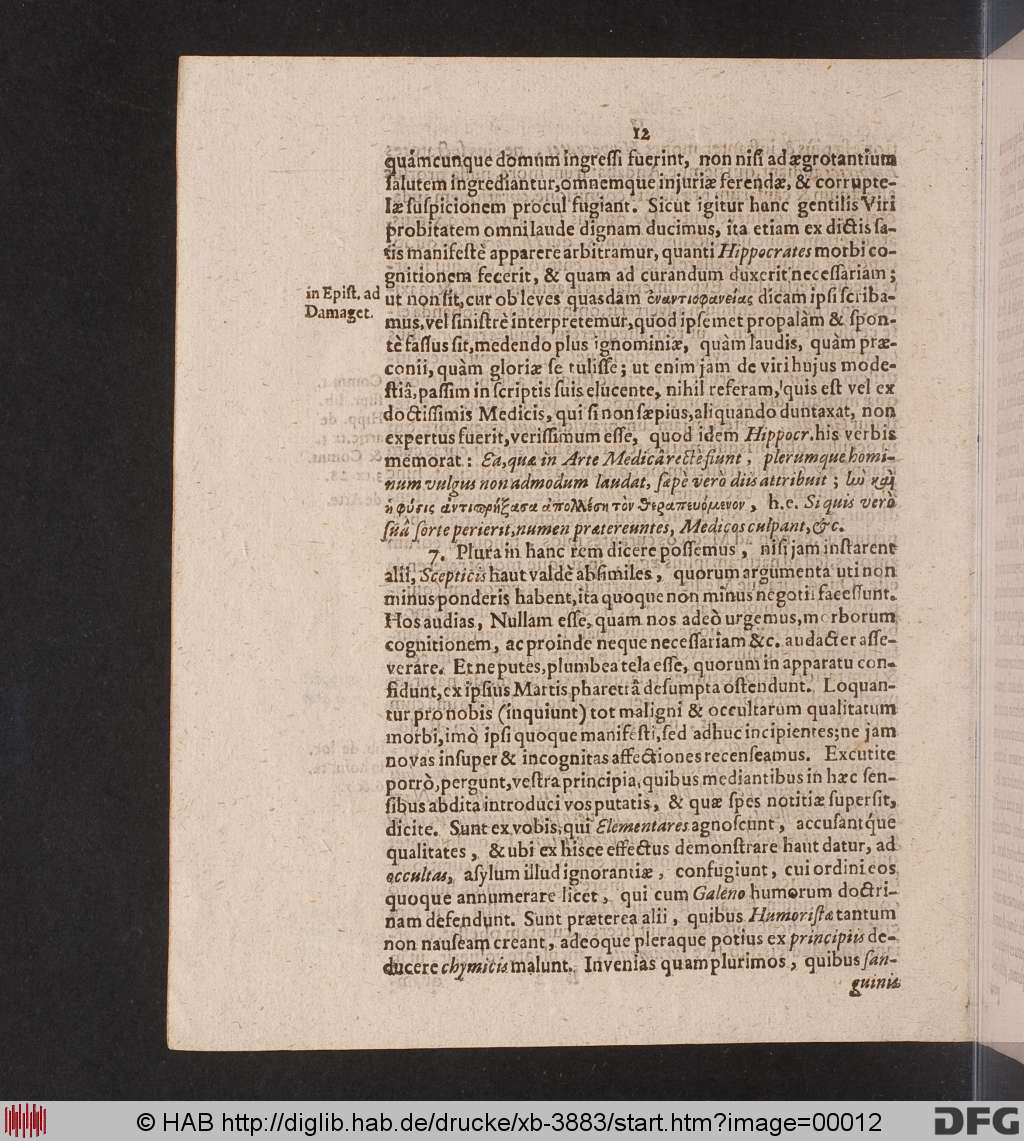 12
quámcunque domum ingreſſi fuerint, non niſi ad ægrotantium
ſalutem ingrediantur, omnemque injuriæ ferendæ, & corrupte-
læ ſuſpicionem procul fugiant. Sicut igitur hanc gentilis Viri
probitatem omni laude dignam ducimus, ita etiam ex dictis ſa-
tis manifeſtè apparere arbitramur, quanti Hippocrates morbi co-
gnitionem fecerit, & quam ad curandum duxerit neceſſariam;
in Epiſt. ad
Damaget.
ut non ſit, cur ob leves quasdam ἐναντιοφανείας dicam ipſi ſcriba-
mus, vel ſiniſtrè interpretemur, quod ipſemet propalàm & ſpon-
tè faſſus ſit, medendo plus ignominiæ, quàm laudis, quàm præ-
conii, quàm gloriæ ſe tuliſſe; ut enim jam de viri hujus mode-
ſtiâ, paſſim in ſcriptis ſuis elucente, nihil referam, quis eſt vel ex
doctiſſimis Medicis, qui ſi non ſæpius, aliquando duntaxat, non
expertus fuerit, veriſſimum eſſe, quod idem Hippocr. his verbis
memorat: Ea, quæ in Arte Medicâ rectè fiunt, plerumque homi-
num vulgus non admodum laudat, ſæpè verò diis attribuit; ἰὼ καὶ
ἡ φύσις ἀντιπρήξασα ἀπολλέσῃ τὸν θεραπευόμενον, h.e. Si quis verò
ſuâ ſorte perierit, numen prætereuntes, Medicos culpant, &c.
7. Plura in hanc rem dicere poſſemus, niſi jam inſtarent
alii, Scepticis haut valdè abſimiles, quorum argumenta uti non
minus ponderis habent, ita quoque non minus negotii faceſſunt.
Hos audias, Nullam eſſe, quam nos adeò urgemus, morborum
cognitionem, ac proinde neque neceſſariam &c. audacter aſſe-
verare. Et ne putes, plumbea tela eſſe, quorum in apparatu con-
fidunt, ex ipſius Martis pharetrâ deſumpta oſtendunt. Loquan-
tur pro nobis (inquiunt) tot maligni & occultarum qualitatum
morbi, imò ipſi quoque manifeſti, ſed adhuc incipientes; ne jam
novas inſuper & incognitas affectiones recenſeamus. Excutite
porrò, pergunt, veſtra principia, quibus mediantibus in hæc ſen-
ſibus abdita introduci vos putatis, & quæ ſpes notitiæ ſuperſit,
dicite. Sunt ex vobis, qui Elementares agnoſcunt, accuſantq́ue
qualitates, & ubi ex hisce effectus demonſtrare haut datur, ad
occultas, aſylum illud ignorantiæ, confugiunt, cui ordini eos
quoque annumerare licet, qui cum Galeno humorum doctri-
nam defendunt. Sunt præterea alii, quibus Humoriſtæ tantum
non nauſeam creant, adeoque pleraque potius ex principiis de-
ducere chymicis malunt. Invenias quamplurimos, quibus ſan-
guinis
© HAB http://diglib.hab.de/drucke/xb-3883/start.htm?image=00012
DFG